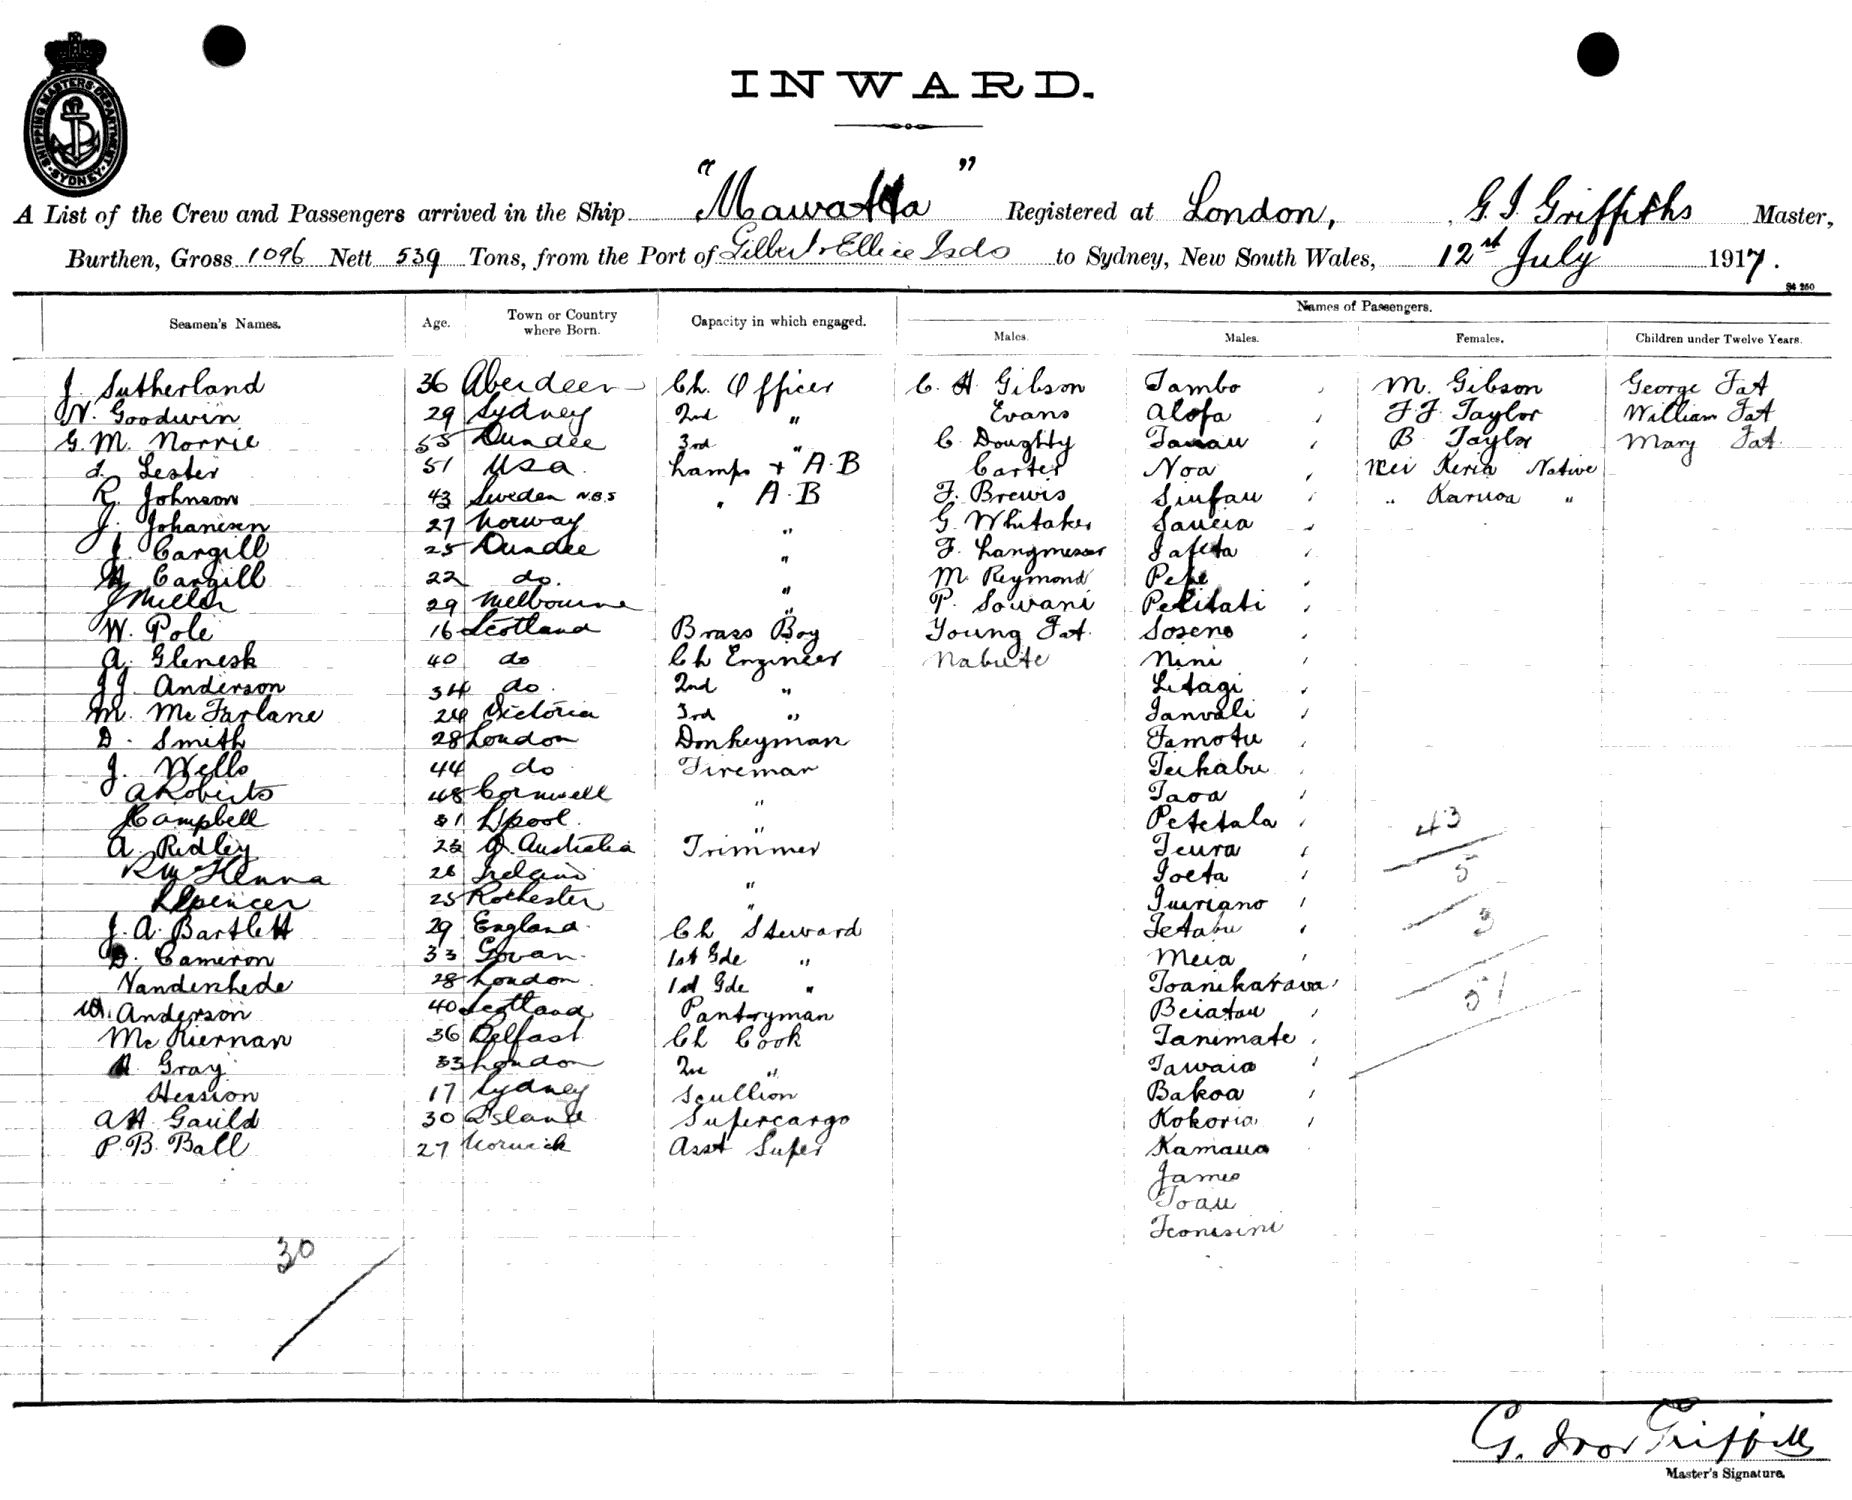 SHIPPING MASTERS DEPARTMENT
SYDNEY
INWARD.
A List of the Crew and Passengers arrived in the Ship "Mawatta" Registered at London, G. I. Griffiths Master,
Burthen, Gross 1096 Nett 539 Tons, from the Port of Gilbert & Ellice Islds to Sydney, New South Wales, 12st July 1917.
S4 250
Seamen's Names. Age. Town or Country where Born. Capacity in which engaged. Names of Passengers.
Males. Males. Females. Children under Twelve Years.
J. Sutherland 36 Aberdeen Ch. Officer C. H Gibson Tambo M. Gibson George Fat
N. Goodwin 29 Sydney 2nd " Evans Alofa F. F. Taylor William Fat
G. M. Norrie 55 Dundee 3rd " C. Doughty Tanau B Taylor Mary Fat
Lester 51 USA Lamps + A.B Carter Noa Nei Keria Native
R. Johnson 43 Sweden N.B.S " A.B F. Brewis Siufau " Karuoa "
J. Johansen 27 Norway " G. Whitaker Saucia
J. Cargill 25 Dundee " F. Langmesser Iafeta
Cargill 22 do. " M. Reymond Pepe
J Miller 29 Melbourne " P. Sowani Pelitati
W. Pole 16 Scotland Brass Boy Young Fat. Soseno
A. Glenesk 40 do Ch Engineer Nabute Nini
J J Anderson 34 do 2nd " Litagi
M. McFarlane 24 Victoria 3rd " Ianvali
D. Smith 28 London Donkeyman Famotu
J. Wells 44 do Fireman Teikabu
A Roberts 48 Cornwell " Taoa
J Campbell 31 L'pool. " Petetala
A. Ridley 23 S. Australia Trimmer Teura
R McKenna 26 Ireland " Ioeta
L Spencer 25 Rochester " Iuiriano
J. A. Bartlett 29 England Ch Steward Tetabu
D. Cameron 33 Govan 1st Gde " Meia
Vanderhede 28 London 1st Gde " Toanikarawa
W. Anderson 40 Scotland Pantryman Beiatau
McKiernan 36 Belfast Ch Cook Tanimate
Gray 33 London 2nd " Tawaia
Hession 17 Sydney Scullion Bakoa
A H Gauld 30 Island Supercargo Kokoria
P. B. Ball 27 Norwich Asst Super Kamaua
James
Toau
Teonisini
43
5
3
51
30
G. Ivor Griffiths
Master's Signature.